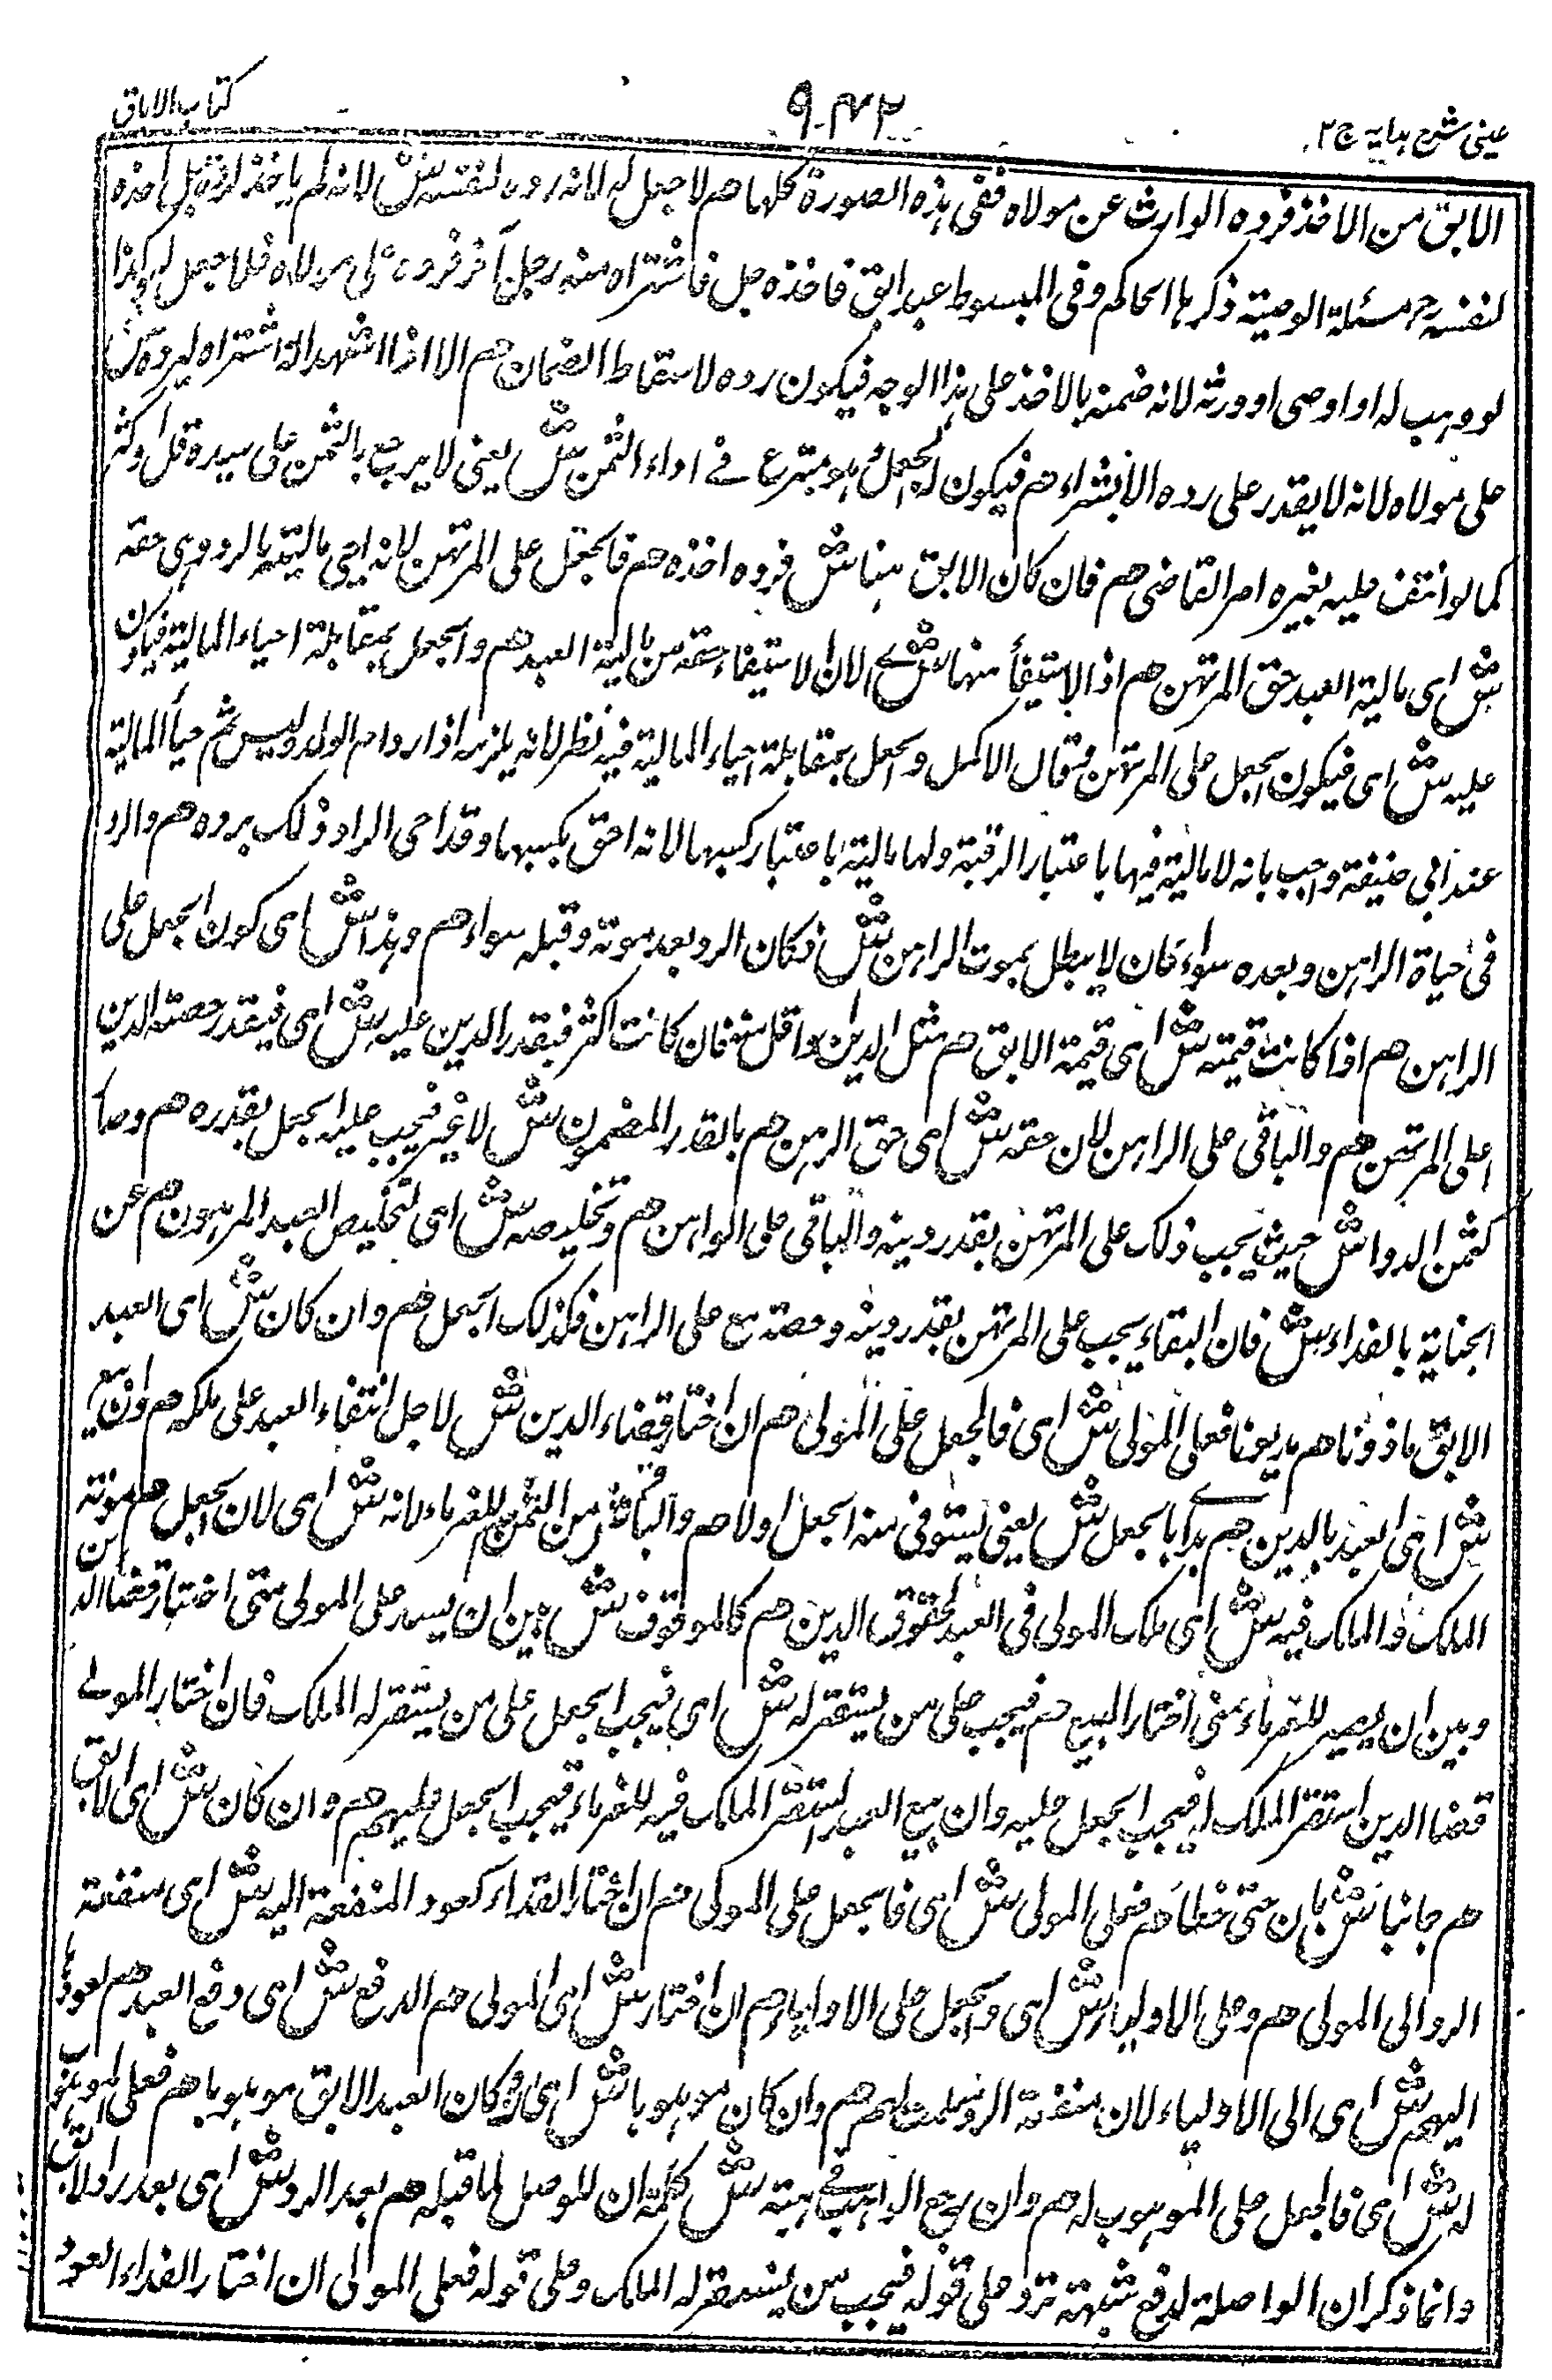 عینی شرح ہدایہ ج ۲
۹۴۲
کتاب الاباق
الابق من الاخذ فروه الوارث عن مولاه ففی ہذه الصورة کلها هم لا جعل له لانه رده لنفسه ش لانه لم یاخذ لرده بل اخذه
لنفسه هم مسئلة الوصیة ذکرها الحاکم وفی المبسوط عبد ابق فاخذه رجل فاشتراه منه رجل آخر فرده علی مولاه فلا جعل له وکذا
لو وہب له او اوصی او ورثه لانه ضمنه بالاخذ علی ہذا الوجه فیکون رده لاسقاط الضمان هم الا اذا اشهد انه اشتراه لیرده ش
علی مولاه لانه لا یقدر علی رده الا بشراء هم فیکون له الجعل وہو متبرع فی اداء الثمن ش یعنی لا یرجع بالثمن علی سیده قل او کثر
کما لو انفق علیه بغیر امر القاضی هم فان کان الابق رہنا ش فرده اخذه هم فالجعل علی المرتهن لانه احیی مالیته بالرد وہی حقه
ش ای مالیة العبد حق المرتهن هم اذ الاستیفاء منها ش ای لان الاستیفاء حقه من مالیة العبد هم والجعل بمقابلة احیاء المالیة فیکون
علیه ش ای فیکون الجعل علی المرتهن فقال الاکمل وجعل بمقابلة احیاء المالیة فیه نظر لانه یلزمه اذا رد ام الولد ولیس ثم احیاء المالیة
عند ابی حنیفة واجیب بانه لا مالیة فیها باعتبار الرقبة ولها مالیة باعتبار کسبها لانه احق بکسبها وقد احی الراد ذلک برده هم والرد
فی حیاة الراہن وبعده سواء فان لا یبطل بموت الراہن ش فکان الرد بعد موته وقبله سواء هم وہذا ش ای کون الجعل علی
الراہن هم اذا کانت قیمته ش ای قیمة الابق هم مثل الدین او اقل منه فان کانت اکثر فبقدر الدین علیه ش ای فبقدر حصته الدین
علی المرتهن هم والباقی علی الراہن لان حقه ش ای حق الرہن هم بالقدر المضمون ش لا غیر فیجب علیه الجعل بقدره هم وصار
کثمن الدوا ش حیث یجب ذلک علی المرتهن بقدر دینه والباقی علی الراہن هم وتخلیصه ش ای تخلیص العبد المرہون هم عن
الجنایة بالفداء ش فان الفداء یجب علی المرتهن بقدر دینه وحصته علی الراہن فکذلک الجعل هم وان کان ش ای العبد
الابق ماذونا هم مدیونا فعلی المولی ش ای فالجعل علی المولی هم ان اختار قضاء الدین ش لاجل انتفاء العبد علی ملکه هم وان بیع
ش ای العبد بالدین هم بدا بالجعل ش یعنی یستوفی منه الجعل اولا هم والباقی ش من الثمن هم للغرماء لانه ش ای لان الجعل هم مونة
الملک والملک فیه ش ای ملک المولی فی العبد لحقوق الدین هم کالموقوف ش بین ان یستقر علی المولی متی اختار قضا الدین
وبین ان یصیر للغرماء متی اختار البیع هم فیجب علی من یستقر له ش ای فیجب الجعل علی من یستقر له الملک فان اختار المولے
قضا الدین استقر الملک له فیجب الجعل علیه وان بیع العبد استقر الملک فیه للغرماء فیجب الجعل علیهم هم وان کان ش ای الابق
هم جانیا ش بان جنی خطأ هم فعلی المولی ش ای فالجعل علی المولی هم ان اختار الفداء لعود المنفعة الیه ش ای منفعة
الرد الی المولی هم وعلی الاولیاء ش ای والجعل علی الاولیاء هم ان اختار ش ای المولی هم الدفع ش ای دفع العبد هم لعودہا
الیهم ش ای الی الاولیاء لان منفعة الرد سلمت لهم هم وان کان موہوبا ش ای ولو کان العبد الابق موہوبا هم فعلی الموہوب
له ش ای فالجعل علی الموہوب له هم وان رجع الواہب فی ہبته ش کلمة ان للوصل لما قبله هم بعد الرد ش ای بعد رد الابق
وانما ذکر ان الواصلة لدفع شبهة ترد علی قوله فیجب من یستقر له الملک وعلی قوله فعلی المولی ان اختار الفداء لعود